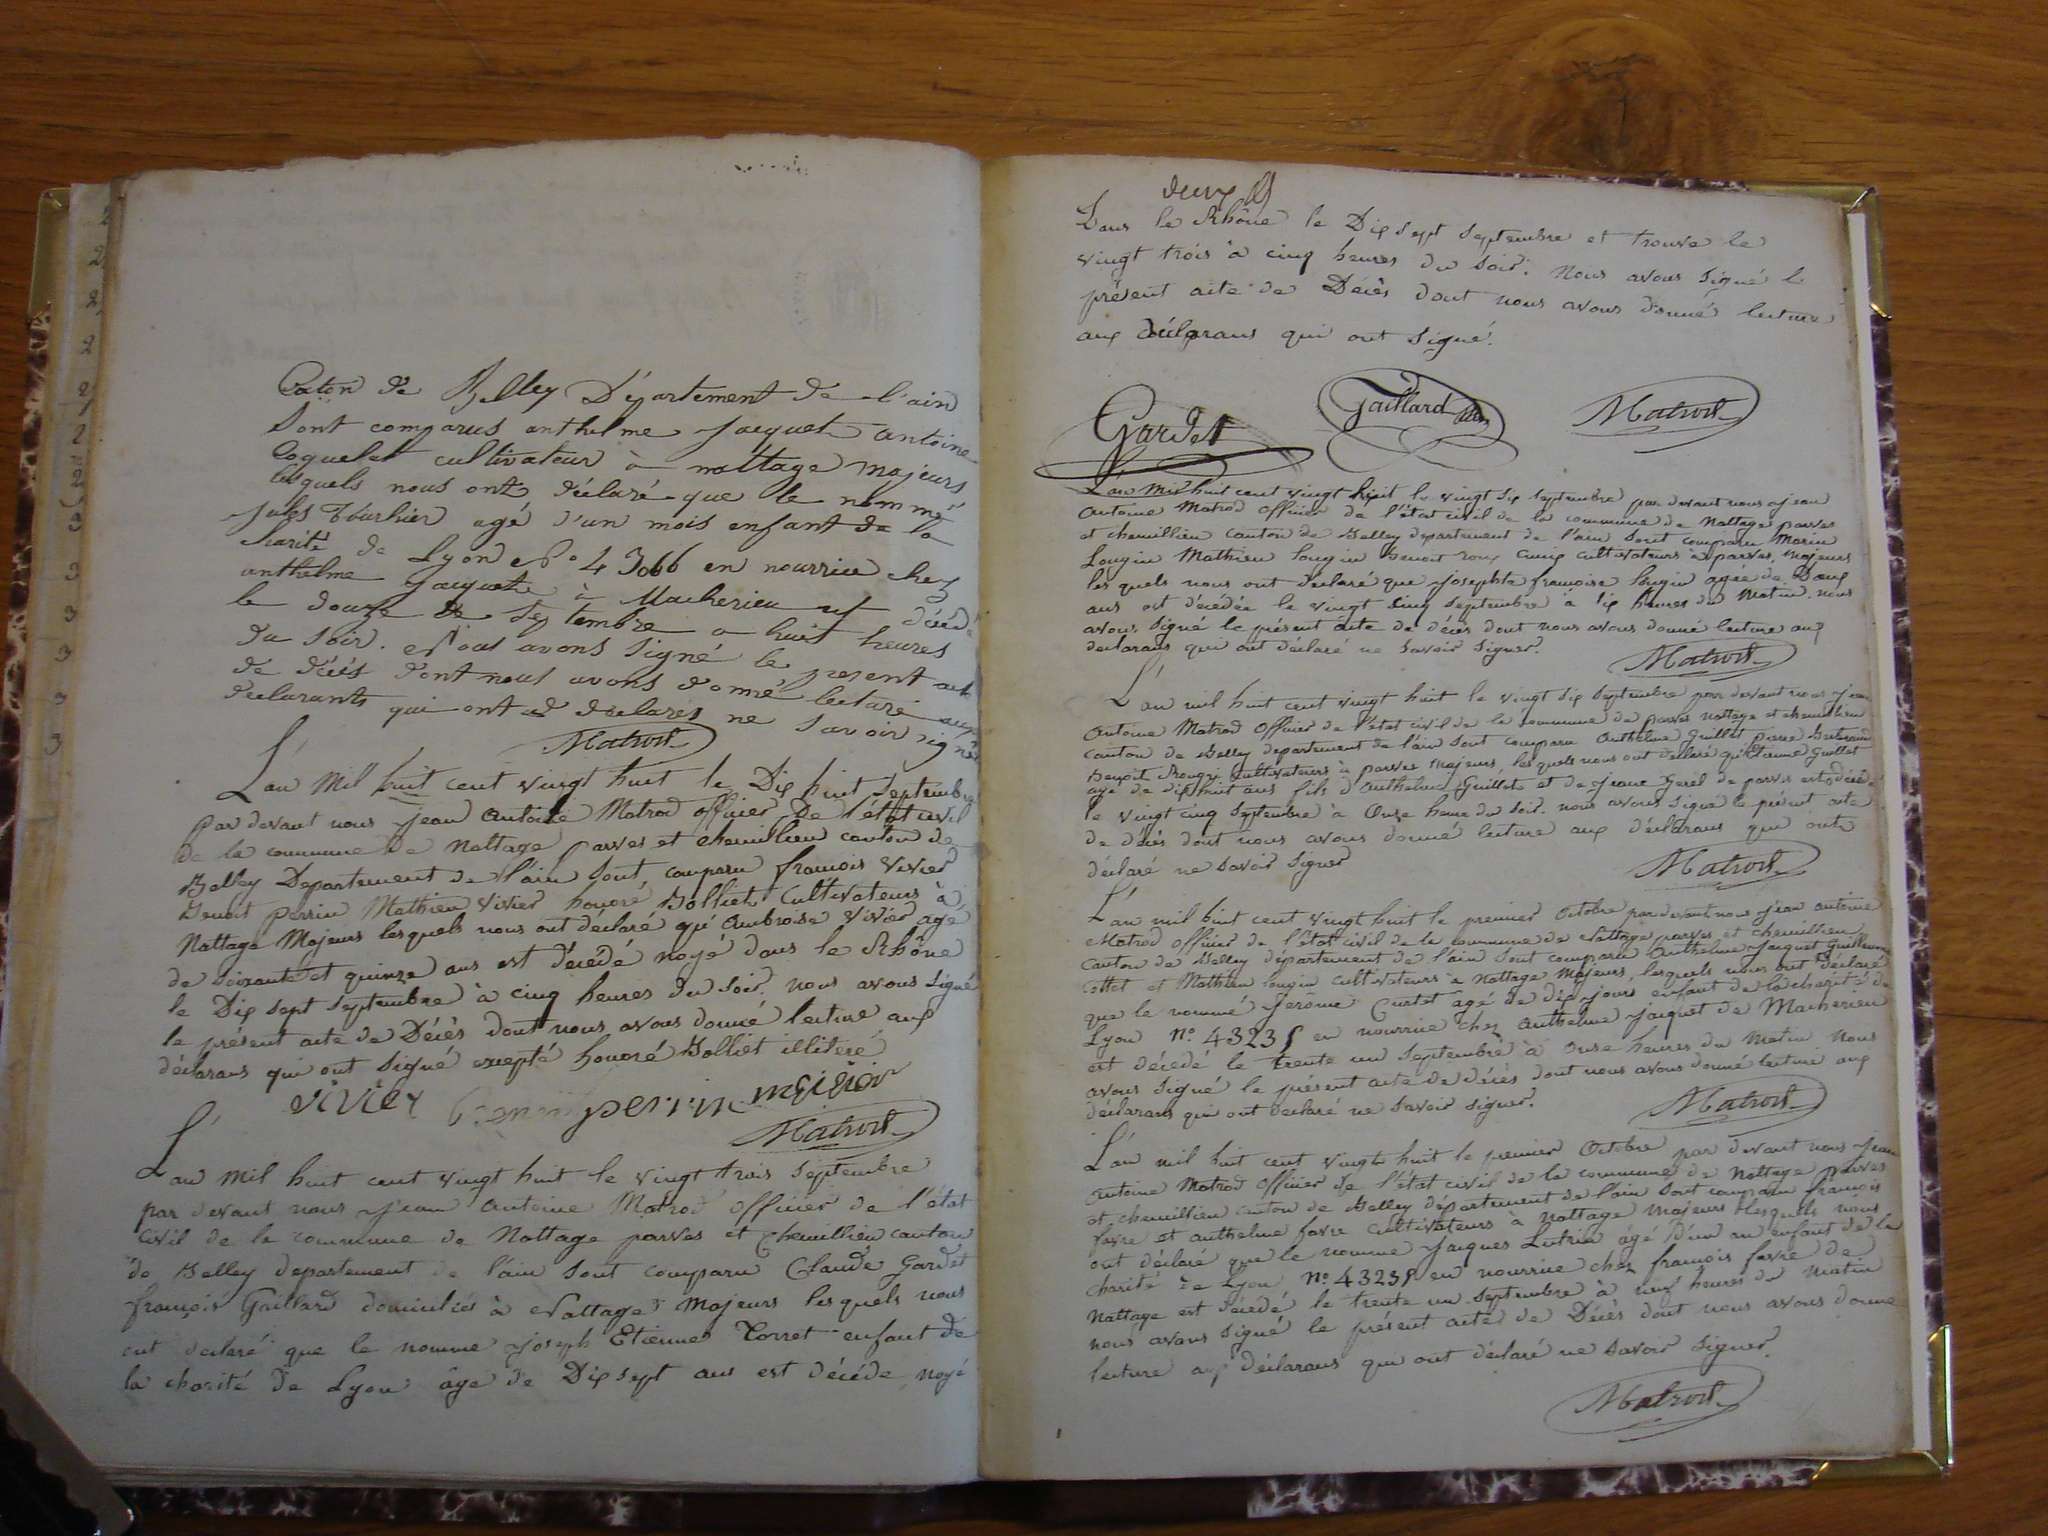 Caton de Belley Département de l'ain
Sont comparus anthelme Jacquet antoine
Coquelet cultivateur à nattage majeurs
lesquels nous ont déclaré que le nommé
jules agé d'un mois enfant de la
charité de Lyon No 43066 en nourrice chez
anthelme Jacquet à Macherieu est décédé
le douze de Septembre a huit heures
du soir. Nous avons signé le present acte
de décés dont nous avons donné lecture aux
declarants qui ont declarés ne savoir signer
Matrod
L'an mil huit cent vingt huit le Dix huit Septembre
par devant nous jean antoine Matrod officier de l'état civil
de la commune de Nattage parves et chemillien canton de
Belley Departement de l'ain sont comparu françois Vivier
Benoit perrin Mathieu Vivier honoré Bolliet Cultivateurs à
Nattage Majeurs lesquels nous ont déclaré qu'ambroise Vivier agé
de soixante et quinze ans est décédé noyé dans le Rhône
le Dix sept septembre à cinq heures du soir. nous avons signé
le présent acte de Décès dont nous avons donné lecture aux
déclarans qui ont signé excepté honoré Bolliet illiteré
vivier perrin mvivier
Matrod
L'an mil huit cent vingt huit le vingt trois septembre
par devant nous jean antoine Matrod officier de l'état
civil de la commune de Nattage parves et Chemillien canton
de Belley departement de l'ain sont comparu Claude Gardet
françois Gaillard domiciliés à Nattage Majeurs lesquels nous
ont declaré que le nommé joseph Etienne Torret enfant de
la charité de Lyon âge de Dix sept ans est décédé noyé
deux
Dans le Rhône le Dix sept septembre et trouvé le
vingt trois à cinq heures du soir. Nous avons signé le
présent acte de Décès dont nous avons donné lecture
aux déclarans qui ont signé.
Gardet Gaillard Matrod
L'an Mil huit cent vingt huit le vingt six septembre par devant nous jean
antoine Matrod officier de l'état civil de la commune de Nattage parves
et chemillien canton de Belley departement de l'ain sont comparu Marin
Longin Mathieu longin benoit roux cultivateurs à parves, Majeurs
les quels nous ont déclaré que josephte françoise longin agée de Deux
ans est décédée le vingt cinq septembre à six heures du Matin. nous
avons signé le présent acte de décès dont nous avons donné lecture aux
declarans qui ont déclaré ne savoir signer.
Matrod
L'an mil huit cent vingt huit le vingt six septembre par devant nous jean
antoine Matrod officier de l'état civil de la commune de parves nattage et chemillien
canton de Belley departement de l'ain sont comparu Anthelme Guillot pierre
Benoit Cultivateurs à parves Majeurs, lesquels nous ont déclaré qu'Etienne Guillot
agé de dix huit ans fils d'Anthelme Guillot et de jeane de parves est décédé
le vingt cinq septembre à Onse heure du soir. nous avons signé le présent acte
de décès dont nous avons donné lecture aux déclarans qui ont
déclaré ne savoir signer
Matrod
L'an mil huit cent vingt huit le premier Octobre par devant nous jean antoine
Matrod officier de l'état civil de la commune de Nattage parves et chemillien
canton de Belley departement de l'ain sont comparu Anthelme Jacquet Guillaume
Cottet et Mathieu longin cultivateurs à Nattage Majeurs, lesquels nous ont déclaré
que le nommé Jerome Curtet agé de dix jours enfant de la charité de
Lyon No. 43235 en nourrice chez Anthelme Jacquet de Macherieu
est décédé le trente un septembre à Onse heures du Matin Nous
avons signé le présent acte de décès dont nous avons donné lecture aux
déclarans qui ont déclaré ne savoir signer.
Matrod
L'an mil huit cent vingt huit le premier Octobre par devant nous jean
antoine Matrod officier de l'état civil de la commune de Nattage parves
et chemillien canton de Belley département de l'ain sont comparu françois
favre et anthelme favre cultivateurs à nattage majeurs lesquels nous
ont déclaré que le nommé Jacques Lutrin âgé d'un an enfant de la
charité de Lyon No. 43238 en nourrice chez françois favre de
Nattage est décédé le trente un septembre à neuf heures du matin
nous avons signé le présent acte de Décès dont nous avons donné
lecture aux déclarans qui ont déclaré ne savoir signer.
Matrod